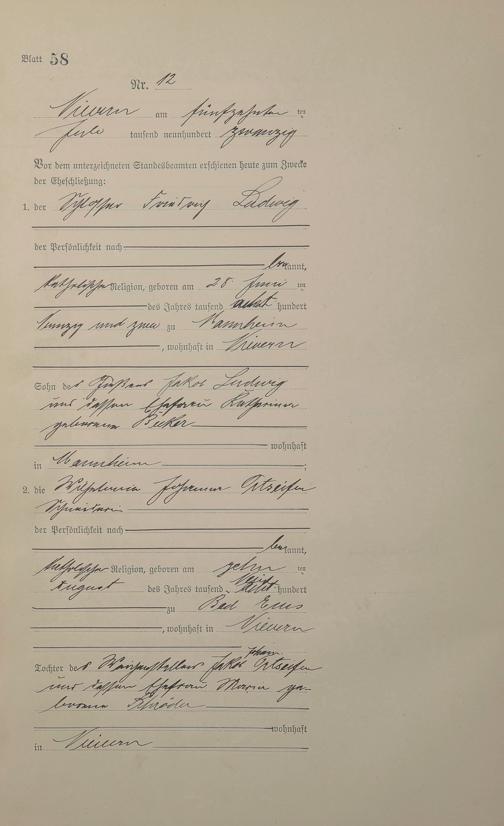 Blatt 58
Nr. 12
Nievern am fünfzehnten ten
Julo tausend neunhundert zwanzig
Vor dem unterzeichneten Standesbeamten erschienen heute zum Zwecke
der Eheschließung:
1. der Schlosser Friedrich Ludwig
der Persönlichkeit nach
bekannt,
katholischer Religion, geboren am 28 Juni ten
des Jahres tausend acht hundert
neunzig und zwei zu Mannheim
, wohnhaft in Nievern
Sohn des Jakob Ludwig
und dessen Ehefrau Katharina
geborenen Becker
wohnhaft
in Mannheim ;
2. die Wilhelmina Johanna Ortseifen
Schneiderin
der Persönlichkeit nach
bekannt,
katholischer Religion, geboren am zehn ten
August des Jahres tausend hundert
zu Bad Ems
, wohnhaft in Nievern
Tochter des Weichenstellers Jakob Johann Ortseifen
und dessen Ehefrau Maria ge-
borenen Schröder
wohnhaft
in Nievern